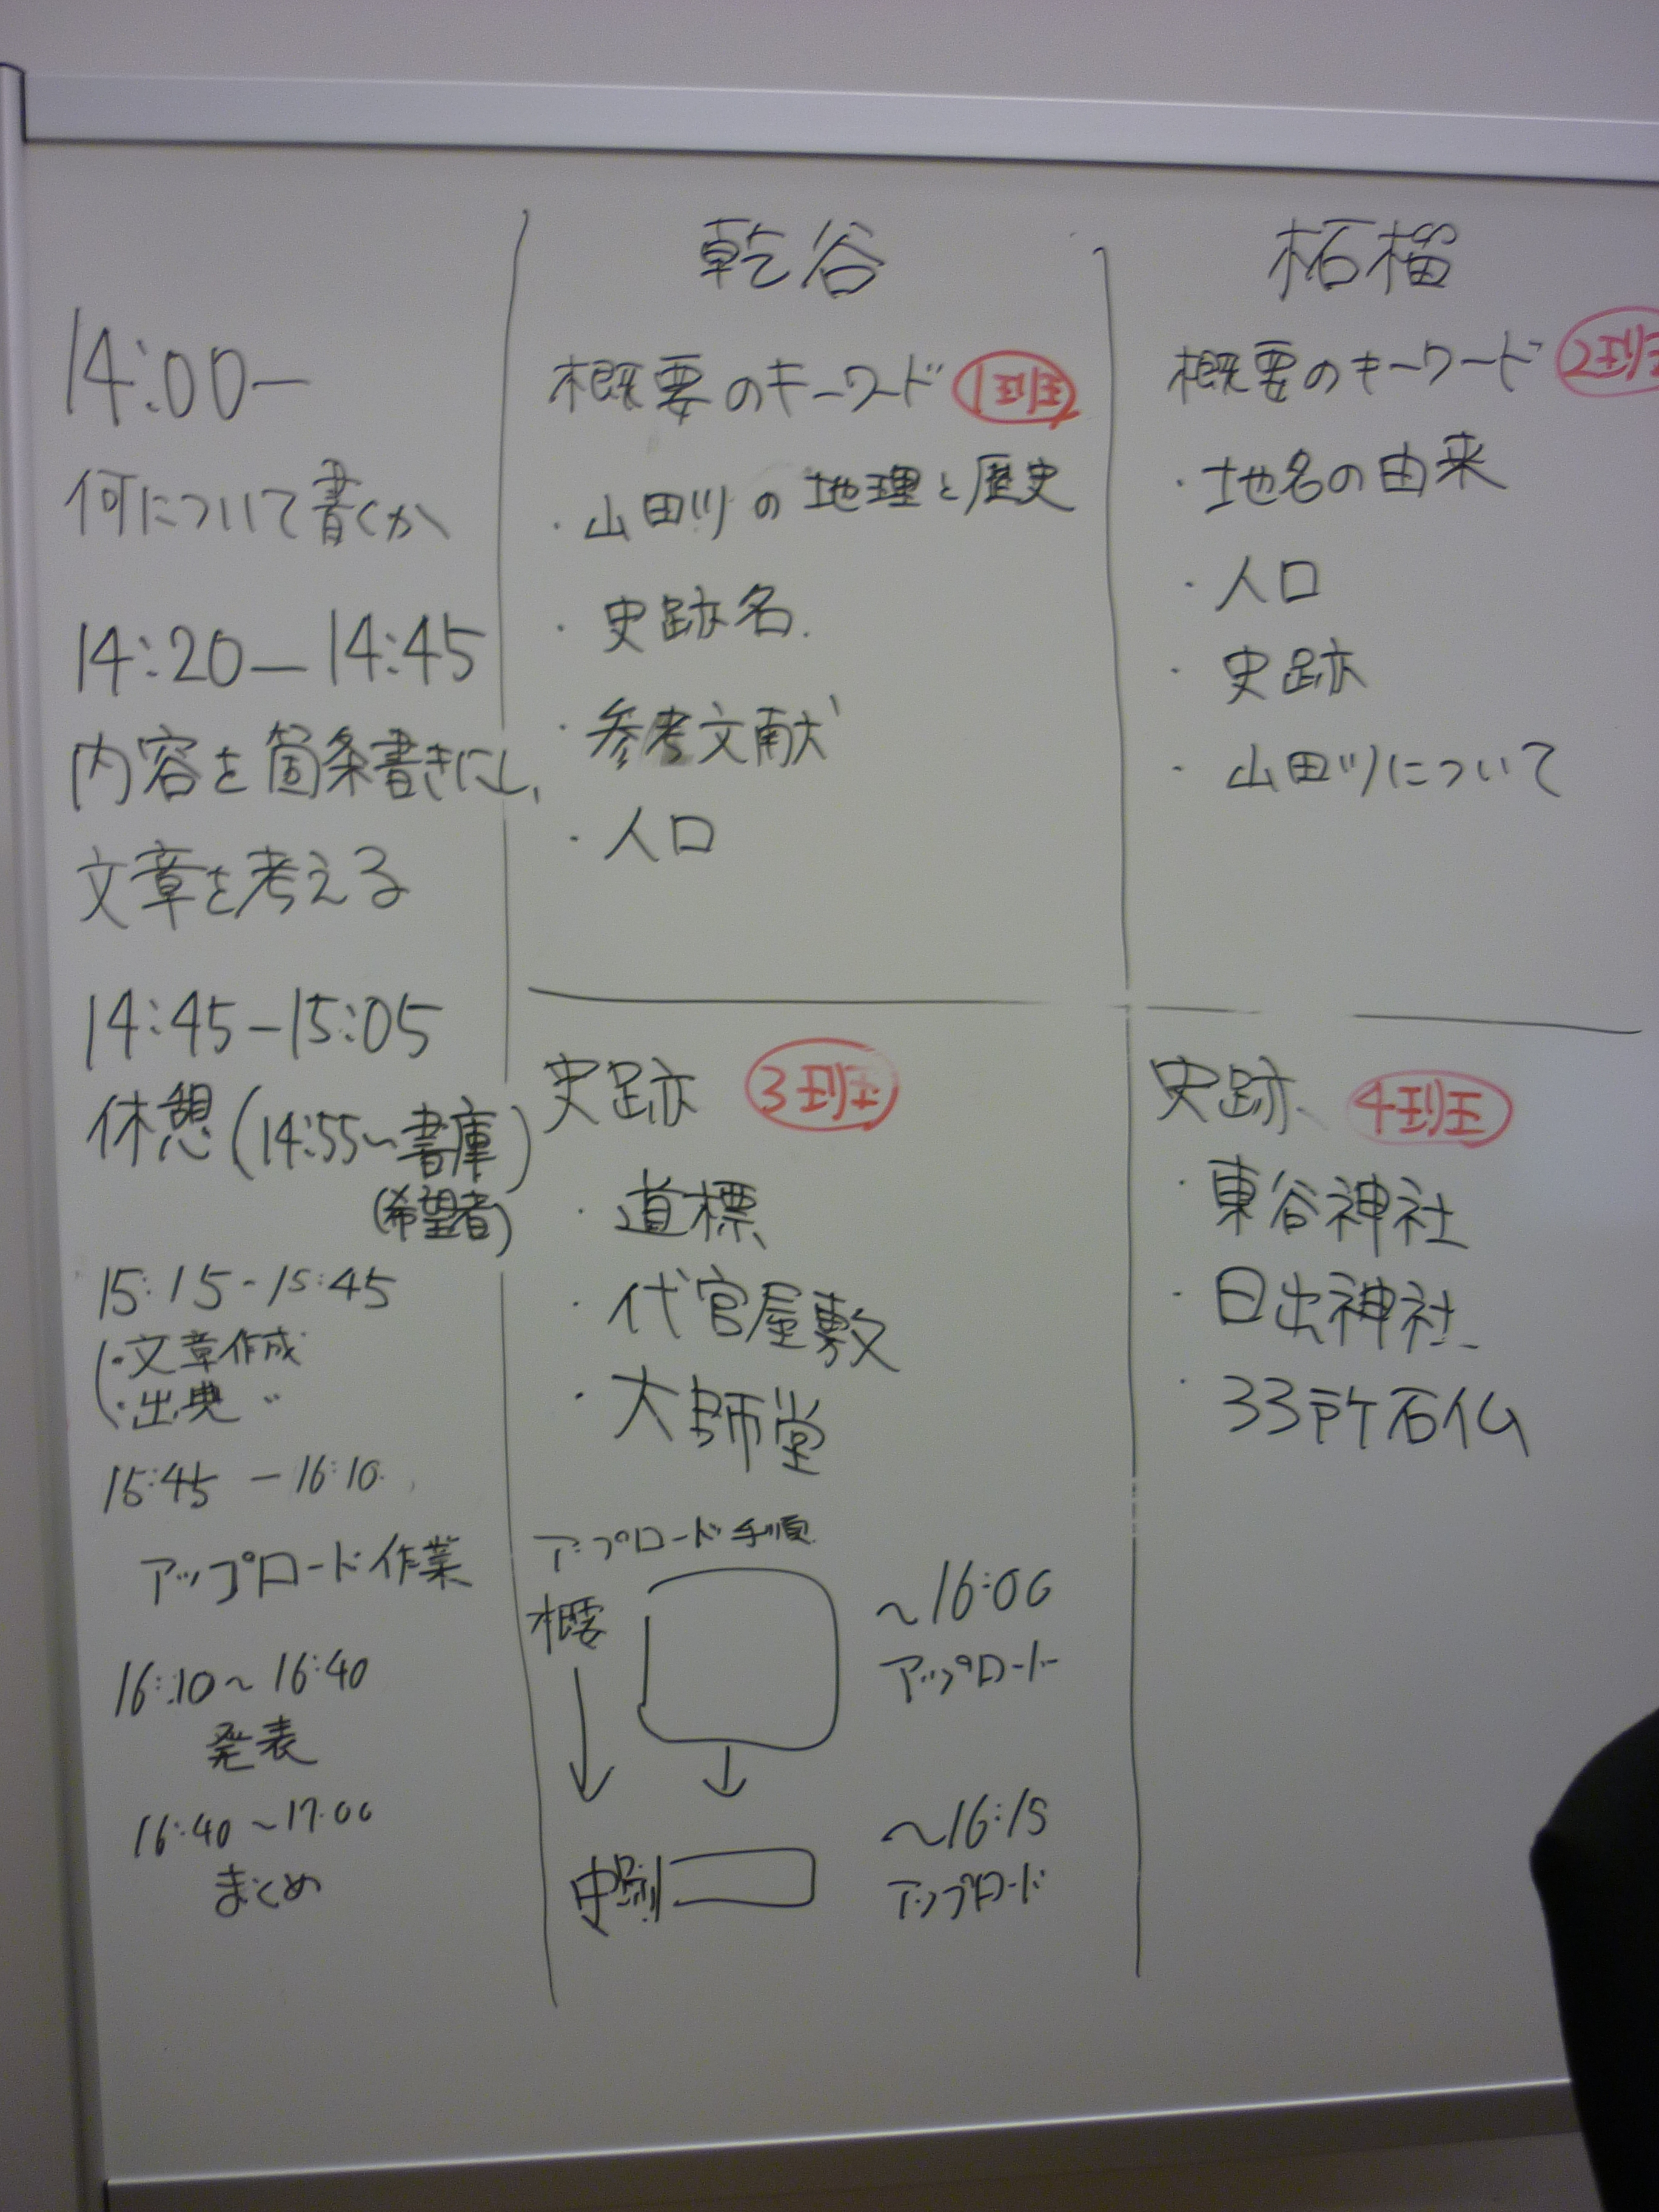 14:00—
何について書くか
14:20—14:45
内容を箇条書きにし、
文章を考える
14:45-15:05
休憩(14:55〜書庫)
(希望者)
15:15-15:45
・文章作成
・出典 〃
15:45-16:10
アップロード作業
16:10〜16:40
発表
16:40〜17:00
まとめ
乾谷
概要のキーワード 1班
・山田川の地理と歴史
・史跡名
・参考文献
・人口
史跡 3班
・道標
・代官屋敷
・大師堂
アップロード手順
概要
〜16:00
アップロード
史跡
〜16:15
アップロード
柘榴
概要のキーワード 2班
・地名の由来
・人口
・史跡
・山田川について
史跡 4班
・東谷神社
・日出神社
・33所石仏